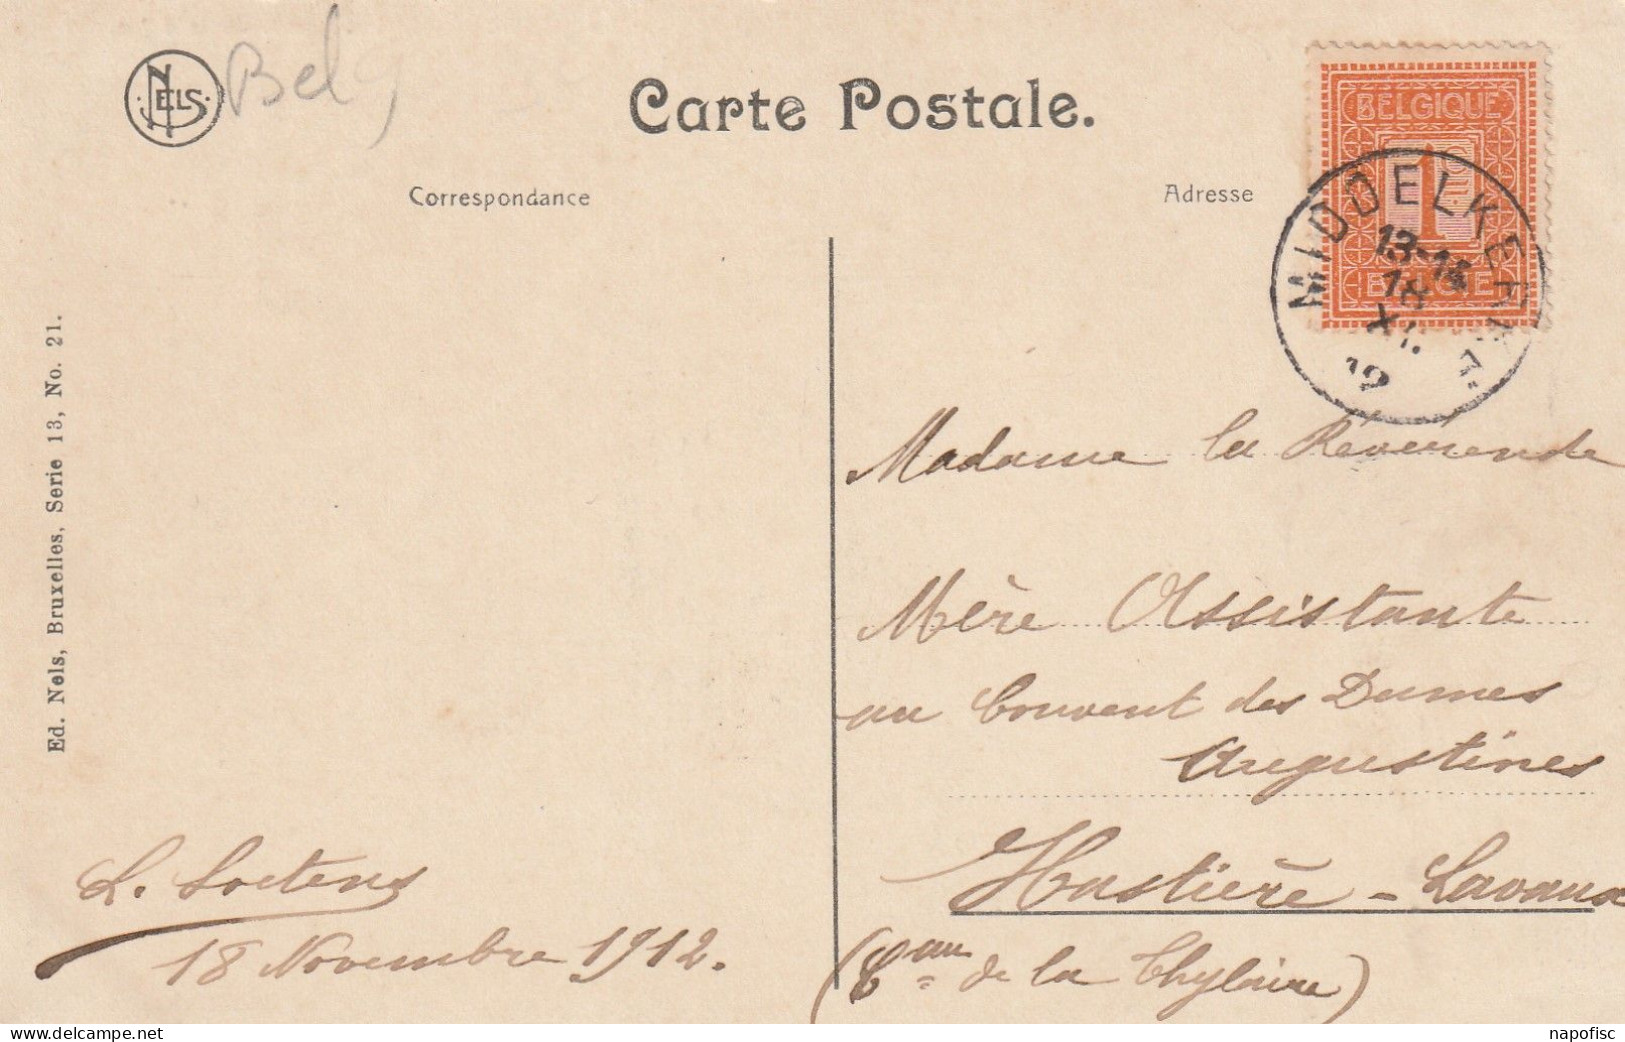 NELS
Belg
Carte Postale.
Correspondance
Adresse
BELGIQUE
1
BELGIË
MIDDELKERKE
13-14
18
XI.
12
Ed. Nels, Bruxelles, Serie 13, No. 21.
Madame la Révérende
Mère Assistante
au Couvent des Dames
Augustines
Hastière - Lavaux
(Cau de la Thylaire)
L. Soetens
18 Novembre 1912.
www.delcampe.net
napofisc